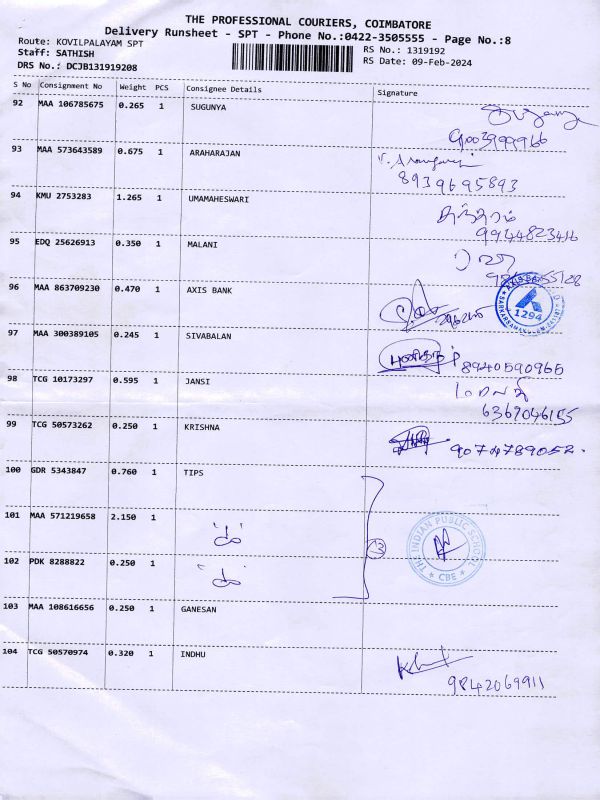 THE PROFESSIONAL COURIERS, COIMBATORE
Delivery Runsheet - SPT - Phone No.:0422-3505555 - Page No.:8
Route: KOVILPALAYAM SPT
RS No.: 1319192
Staff: SATHISH
RS Date: 09-Feb-2024
DRS No.: DCJB131919208
S No Consignment No Weight PCS Consignee Details Signature
92 MAA 106785675 0.265 1 SUGUNYA
9003999966
93 MAA 573643589 0.675 1 ARAHARAJAN
8939695893
94 KMU 2753283 1.265 1 UMAMAHESWARI
9944823416
95 EDQ 25626913 0.350 1 MALANI
96 MAA 863709230 0.470 1 AXIS BANK
AXIS BANK
1294
97 MAA 300389105 0.245 1 SIVABALAN
8940590965
98 TCG 10173297 0.595 1 JANSI
6369046155
99 TCG 50573262 0.250 1 KRISHNA
9074789052.
100 GDR 5343847 0.760 1 TIPS
101 MAA 571219658 2.150 1
13
THE INDIAN PUBLIC SCHOOL
CBE
102 PDK 8288822 0.250 1
103 MAA 108616656 0.250 1 GANESAN
104 TCG 50570974 0.320 1 INDHU
9842069911